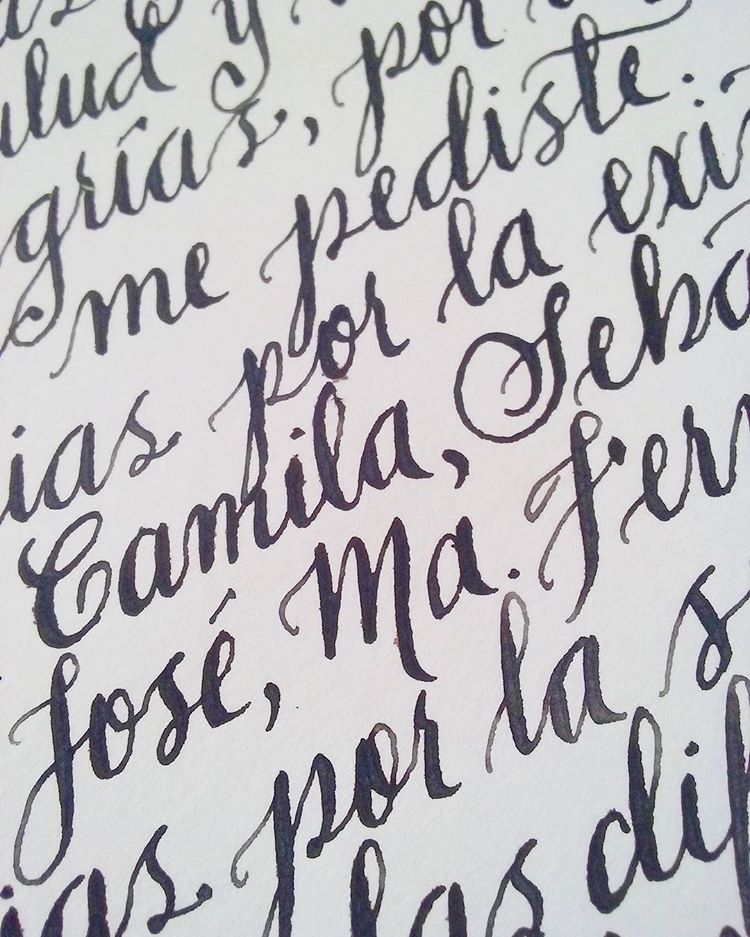 alud y
grías, por
me pediste.
ias por la exi
Camila, Seba
José, Ma. Fern
ias por la s
las dif